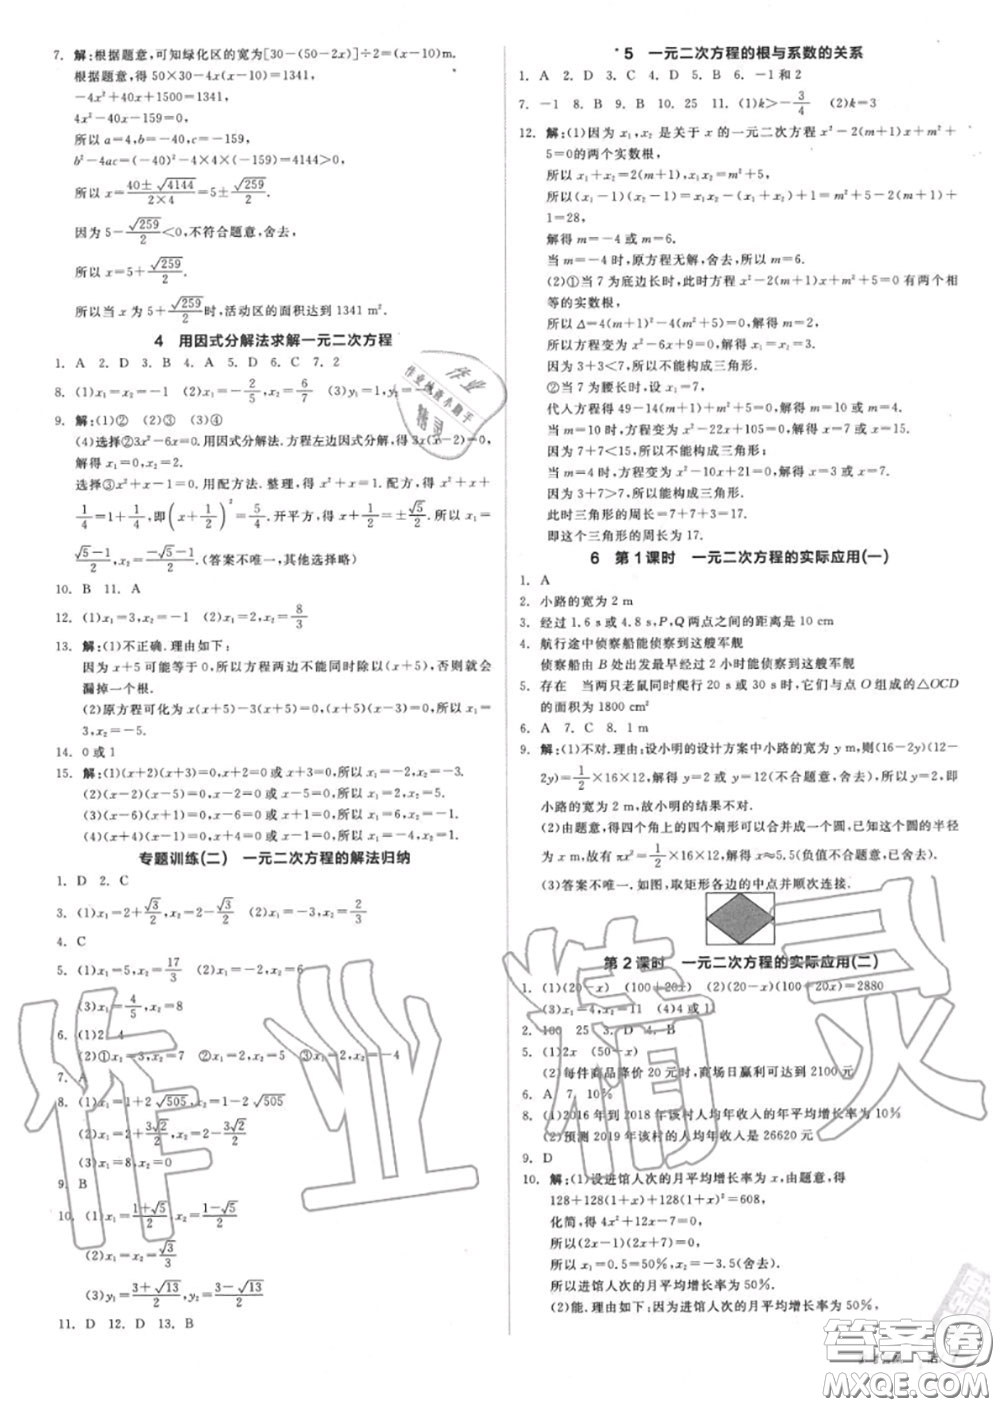 7. 解:根据题意,可知绿化区的宽为[30-(50-2x)]÷2=(x-10)m.
根据题意,得 50×30-4x(x-10)=1341,
-4x²+40x+1500=1341,
4x²-40x-159=0,
所以 a=4,b=-40,c=-159,
b²-4ac=(-40)²-4×4×(-159)=4144>0,
所以 x=(40±√4144)/(2×4)=5±√259/2.
因为 5-√259/2<0,不符合题意,舍去,
所以 x=5+√259/2.
所以当 x 为 5+√259/2时,活动区的面积达到 1341 m².
4 用因式分解法求解一元二次方程
1. A 2. D 3. B 4. A 5. D 6. C 7. 2
8. (1)x₁=0,x₂=2 (2)x₁=-2/5,x₂=6/7 (3)y₁=1,y₂=
9. 解:(1)② (2)③ (3)④
(4)选择②3x²-6x=0.用因式分解法.方程左边因式分解,得 3x(x-2)=0,
解得 x₁=0,x₂=2.
选择③x²+x-1=0.用配方法.整理,得 x²+x=1.配方,得 x²+x+
1/4=1+1/4,即(x+1/2)²=5/4.开平方,得 x+1/2=±√5/2.所以 x₁=
(√5-1)/2,x₂=(-√5-1)/2.(答案不唯一,其他选择略)
10. B 11. A
12. (1)x₁=3,x₂=-1 (2)x₁=0,x₂=8/3
13. 解:(1)不正确.理由如下:
因为 x+5 可能等于 0,所以方程两边不能同时除以(x+5),否则就会
漏掉一个根.
(2)原方程可化为 x(x+5)-3(x+5)=0,(x-3)(x+5)=0,所以 x₁=
3,x₂=-5.
14. 0 或 1
15. 解:(1)(x+2)(x+3)=0,x+2=0 或 x+3=0,所以 x₁=-2,x₂=-3.
(2)(x-2)(x-5)=0,x-2=0 或 x-5=0,所以 x₁=2,x₂=5.
(3)(x-6)(x+1)=0,x-6=0 或 x+1=0,所以 x₁=6,x₂=-1.
(4)(x+4)(x-1)=0,x+4=0 或 x-1=0,所以 x₁=-4,x₂=1.
专题训练(二) 一元二次方程的解法归纳
1. D 2. C
3. (1)x₁=2+√3/2,x₂=2-√3/2 (2)x₁=0,x₂=2/3
4. C
5. (1)x₁=5,x₂=17/3 (2)x₁=1,x₂=
(3)x₁=4/5,x₂=8
6. (1)2 4
(2)①x₁=3,x₂=7 ②x₁=2,x₂=5 ③x₁=2,x₂=-4
7. A
8. (1)x₁=1+2√505,x₂=1-2√505
(2)x₁=2+3√2/2,x₂=2-3√2/2
(3)x₁=8,x₂=0
9. B
10. (1)x₁=(1+√5)/2,x₂=(1-√5)/2
(2)x₁=x₂=√3/3
(3)y₁=(3+√13)/2,y₂=(3-√13)/2
11. D 12. D 13. B
*5 一元二次方程的根与系数的关系
1. A 2. D 3. C 4. D 5. B 6. -1 和 2
7. -1 8. B 9. B 10. 25 11. (1)k>-3/4 (2)k=3
12. 解:(1)因为 x₁,x₂ 是关于 x 的一元二次方程 x²-2(m+1)x+m²+
5=0的两个实数根,
所以 x₁+x₂=2(m+1),x₁x₂=m²+5,
所以(x₁-1)(x₂-1)=x₁x₂-(x₁+x₂)+1=m²+5-2(m+1)+
1=28,
解得 m=-4 或 m=6.
当 m=-4 时,原方程无解,舍去,所以 m=6.
(2)①当 7 为底边长时,此时方程 x²-2(m+1)x+m²+5=0有两个相
等的实数根,
所以 Δ=4(m+1)²-4(m²+5)=0,解得 m=2.
所以方程变为 x²-6x+9=0,解得 x₁=x₂=3.
因为 3+3<7,所以不能构成三角形.
②当 7 为腰长时,设 x₁=7,
代入方程得 49-14(m+1)+m²+5=0,解得 m=10 或 m=4.
当 m=10 时,方程变为 x²-22x+105=0,解得 x=7 或 x=15.
因为 7+7<15,所以不能构成三角形;
当 m=4 时,方程变为 x²-10x+21=0,解得 x=3 或 x=7.
因为 3+7>7,所以能构成三角形.
此时三角形的周长=7+7+3=17.
即这个三角形的周长为 17.
6 第 1 课时 一元二次方程的实际应用(一)
1. A
2. 小路的宽为 2 m
3. 经过 1.6 s 或 4.8 s,P,Q 两点之间的距离是 10 cm
4. 航行途中侦察船能侦察到这艘军舰
侦察船由 B 处出发最早经过 2 小时能侦察到这艘军舰
5. 存在 当两只老鼠同时爬行 20 s 或 30 s 时,它们与点 O 组成的△OCD
的面积为 1800 cm²
6. A 7. C 8. 1 m
9. 解:(1)不对.理由:设小明的设计方案中小路的宽为 y m,则(16-2y)(12-
2y)=1/2×16×12,解得 y=2 或 y=12(不合题意,舍去).所以,即
小路的宽为 2 m,故小明的结果不对.
(2)由题意,得四个角上的四个扇形可以合并成一个圆,设这个圆的半径
为 x m,故有 πx²=1/2×16×12,解得 x≈5.5(负值不合题意,舍去).
(3)答案不唯一.如图,取矩形各边的中点并顺次连接.
第 2 课时 一元二次方程的实际应用(二)
1. (1)(20-x) (100+20x) (2)(20-x)(100+20x)=2880
(3)x₁=4,x₂=11 (4)4 或 11
2. 100 25 3. D 4. B
5. (1)2x (50-x)
(2)每件商品降价 20 元时,商场日赢利可达到 2100 元
6. A 7. 10%
8. (1)2016 年到 2018 年该村人均年收入的年平均增长率为 10%
(2)预测 2019 年该村的人均年收入是 26620 元
9. D
10. 解:(1)设进馆人次的月平均增长率为 x,由题意,得
128+128(1+x)+128(1+x)²=608,
化简,得 4x²+12x-7=0,
所以(2x-1)(2x+7)=0,
所以 x₁=0.5=50%,x₂=-3.5(舍去).
所以进馆人次的月平均增长率为 50%.
(2)能.理由如下:因为进馆人次的月平均增长率为 50%,
作业精灵
答案圈
MXQE.COM